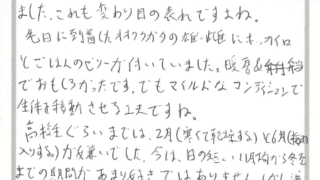 ました。これも変わり目の表れですよね。
先日に到着したオオクワガタの雄・雌にも、カイロ
とごはんのゼリーが付いていました。暖房&弁当
でおもしろかったです。でもマイルドなコンディションで
生体を移動させる工夫ですね。
高校生ぐらいまでは、2月(寒くて乾燥する)と6月(梅雨
入りする)が嫌いでした。今は、日の短い11月頃から冬至
までの期間があまり好きではありません。しかし